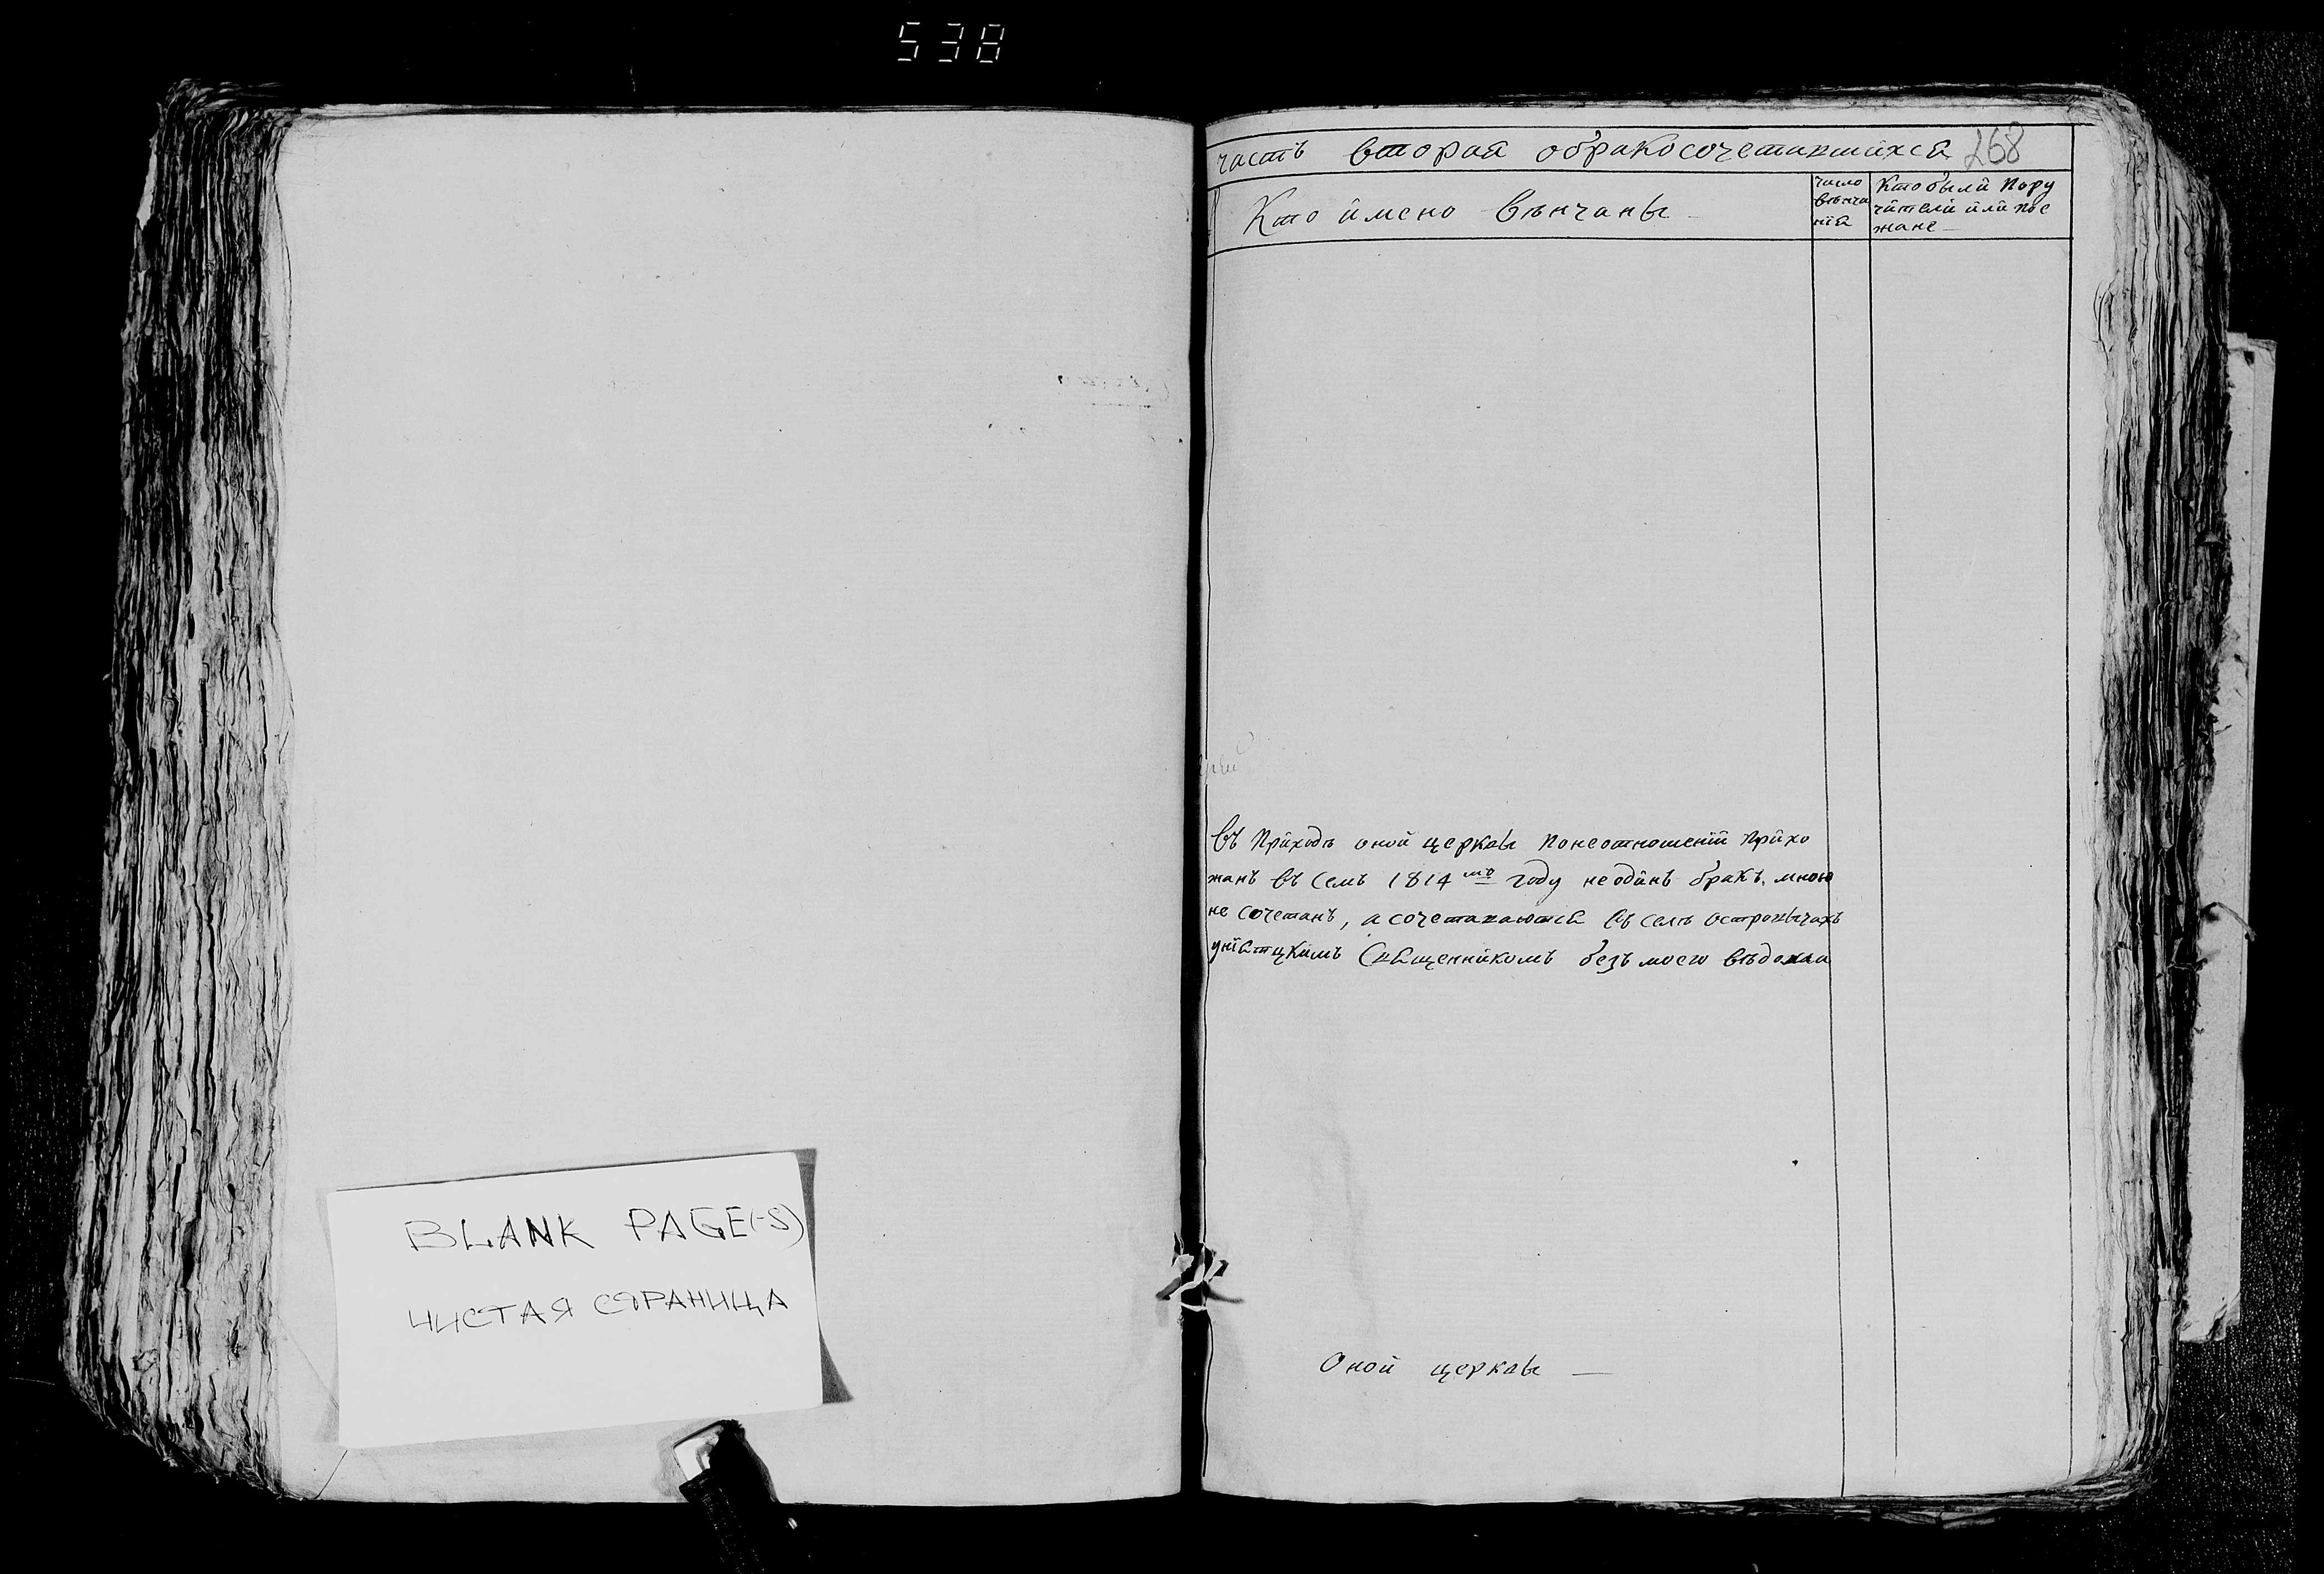 538
BLANK PAGE(-S)
ЧИСТАЯ СТРАНИЦА
часть вторая обракосочетавшихся 268
Кто имено вѣнчаны
число
вѣнча
нія
Кто были пору
чители или пое
жане
въ приходѣ оной церквы понеотношеніи прихо
жанъ въ семъ 1814мъ году неодинъ бракъ мною
не сочетанъ, а сочетаваются въ селѣ островычахъ
уніятцкимъ священникомъ безъ моего вѣдома
Оной церквы